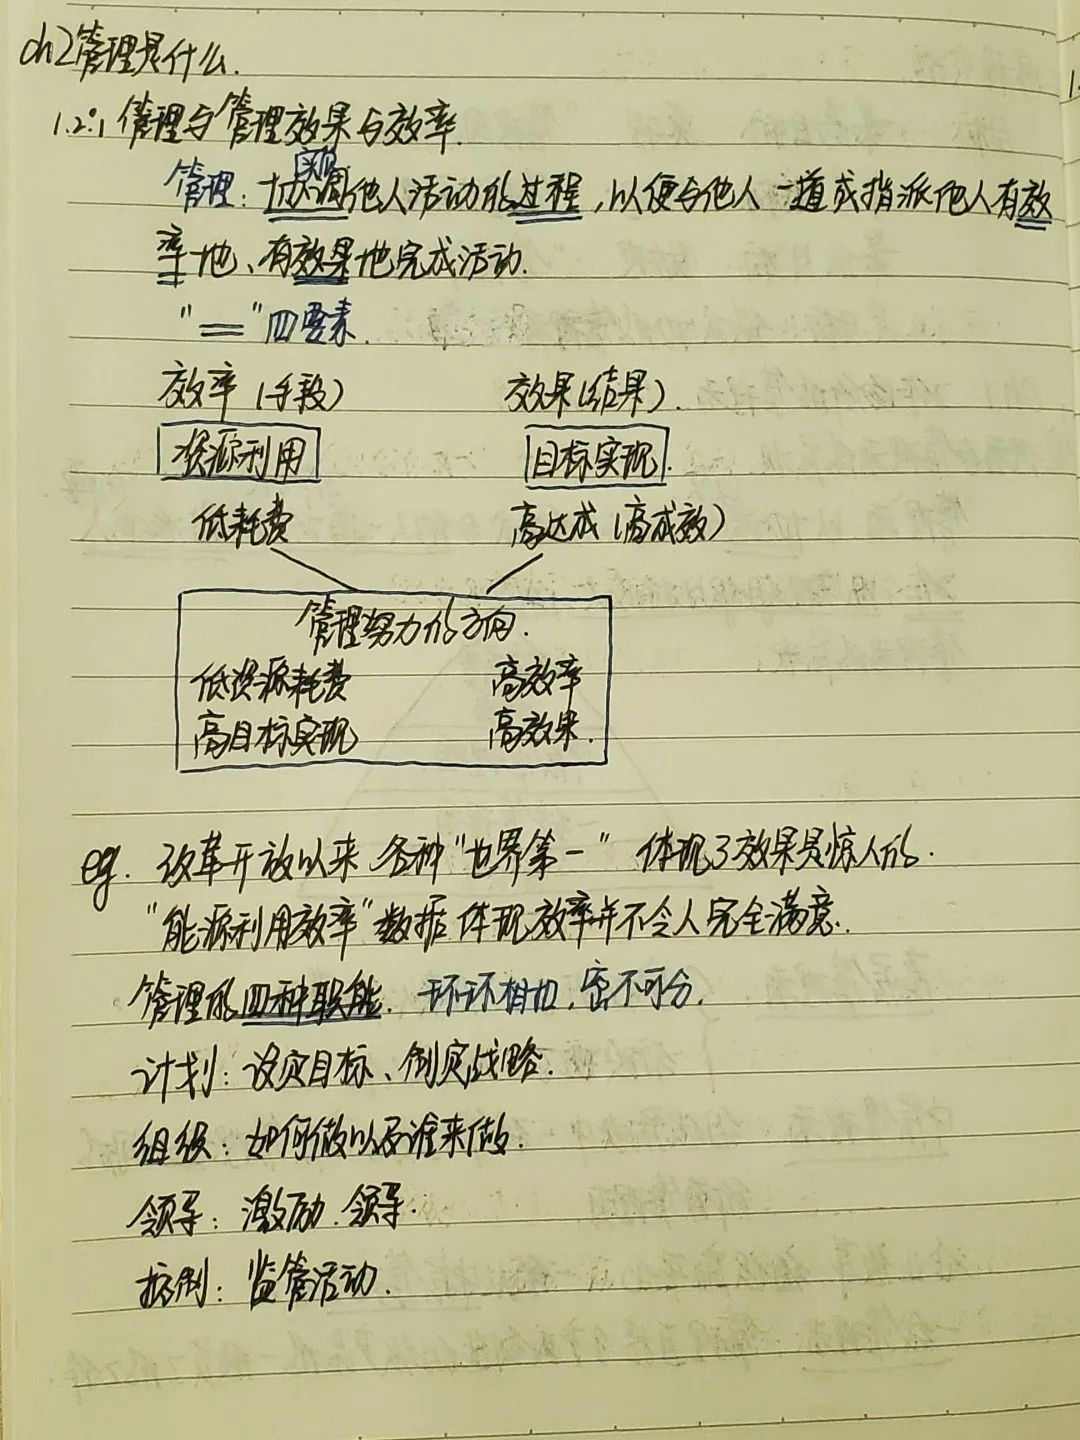 ch2管理是什么.
1.2.1 管理与管理效果与效率.
实现
管理: 协调他人活动的过程,以便与他人一道或指派他人有效
率地、有效果地完成活动.
"＝"四要素.
效率(手段) 效果(结果).
资源利用 目标实现.
低耗费 高达成(高成效)
管理努力的方向.
低资源耗费 高效率
高目标实现 高效果.
eg. 改革开放以来 各种"世界第一" 体现了效果是惊人的.
"能源利用效率"数据 体现效率并不令人完全满意.
管理的四种职能. 环环相扣,密不可分.
计划: 设定目标、制定战略.
组织: 如何做以及谁来做.
领导: 激励.领导.
控制: 监管活动.